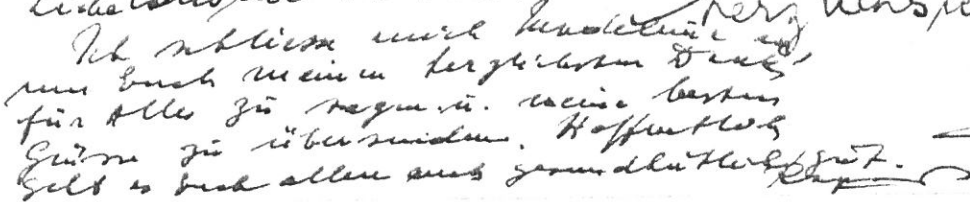 Ich schliesse mich Madeleine an
um Euch meinen herzlichsten Dank
für Alles zu sagen u. meine besten
Grüsse zu übersenden. Hoffentlich
geht es Euch allen auch gesundheitlich gut.